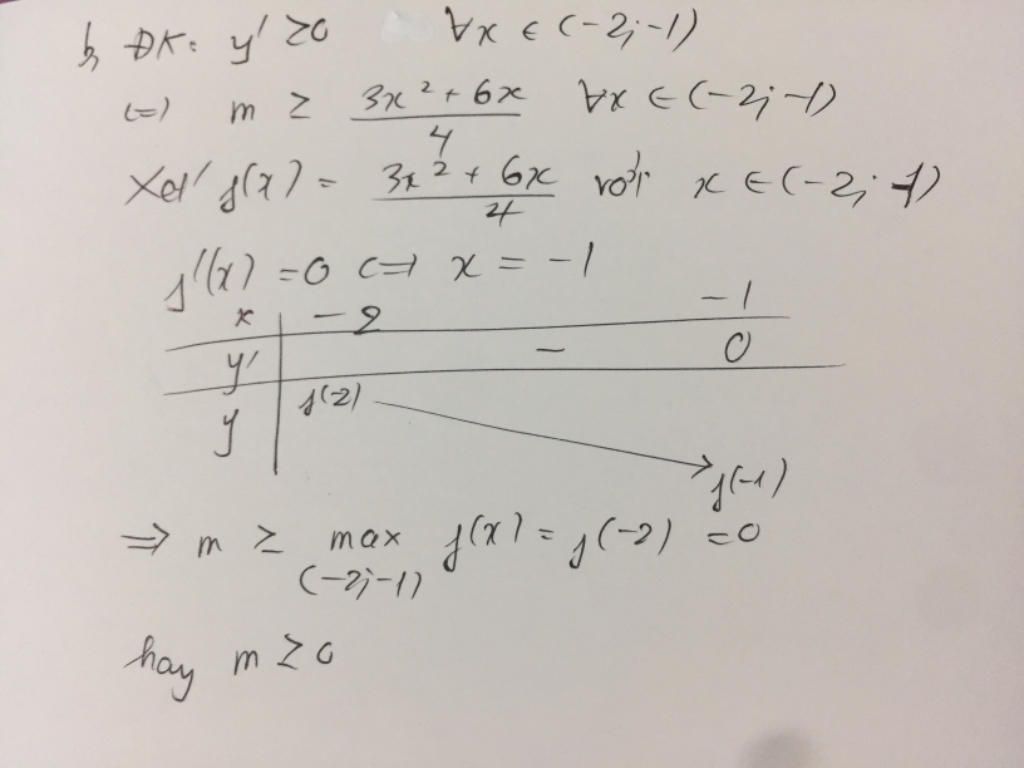 b, ĐK: y' ≥ 0 ∀x ∈ (-2; -1)
(=) m ≥ (3x² + 6x)/4 ∀x ∈ (-2; -1)
Xét f(x) = (3x² + 6x)/4 với x ∈ (-2; -1)
f'(x) = 0 <=> x = -1
x -2 -1
y' - 0
y f(-2) f(-1)
=> m ≥ max f(x) = f(-2) = 0
(-2; -1)
hay m ≥ 0